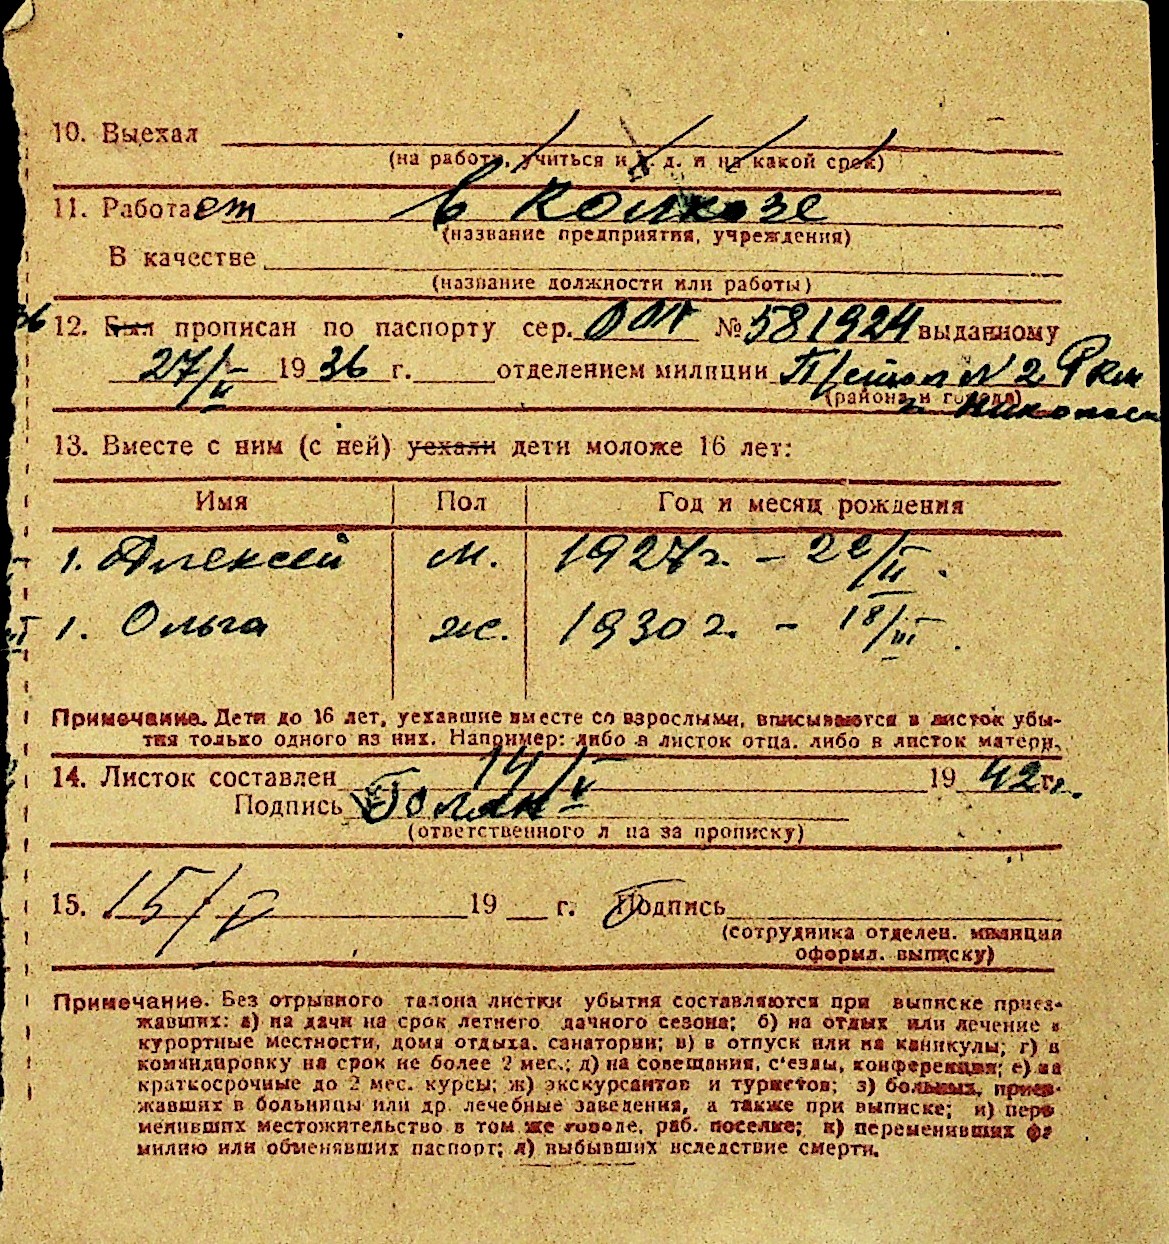 10. Выехал
(на работу, учиться и т. д. и на какой срок)
11. Работает в колхозе
(название предприятия, учреждения)
В качестве
(название должности или работы)
12. Был прописан по паспорту сер. № 581924 выданному
27/II 1936 г. отделением милиции № 2
(района и города)
13. Вместе с ним (с ней) уехали дети моложе 16 лет:
Имя Пол Год и месяц рождения
1. Алексей м. 1927 г. - 22/II.
1. Ольга ж. 1930 г. - 18/III.
Примечание. Дети до 16 лет, уехавшие вместе со взрослыми, вписываются в листок убы-
тия только одного из них. Например: либо в листок отца, либо в листок матери.
14. Листок составлен 14/V 1942 г.
Подпись
(ответственного л ца за прописку)
15. 15/V 19 г. Подпись
(сотрудника отделен. милиции
оформл. выписку)
Примечание. Без отрывного талона листки убытия составляются при выписке приез-
жавших: а) на дачи на срок летнего дачного сезона; б) на отдых или лечение в
курортные местности, дома отдыха, санатории; в) в отпуск или на каникулы; г) в
командировку на срок не более 2 мес.; д) на совещания, с'езды, конференции; е) на
краткосрочные до 2 мес. курсы; ж) экскурсантов и туристов; з) больных, приез-
жавших в больницы или др. лечебные заведения, а также при выписке; и) пере
менивших местожительство в том же городе, раб. поселке; к) переменивших фа
милию или обменявших паспорт; л) выбывших вследствие смерти.